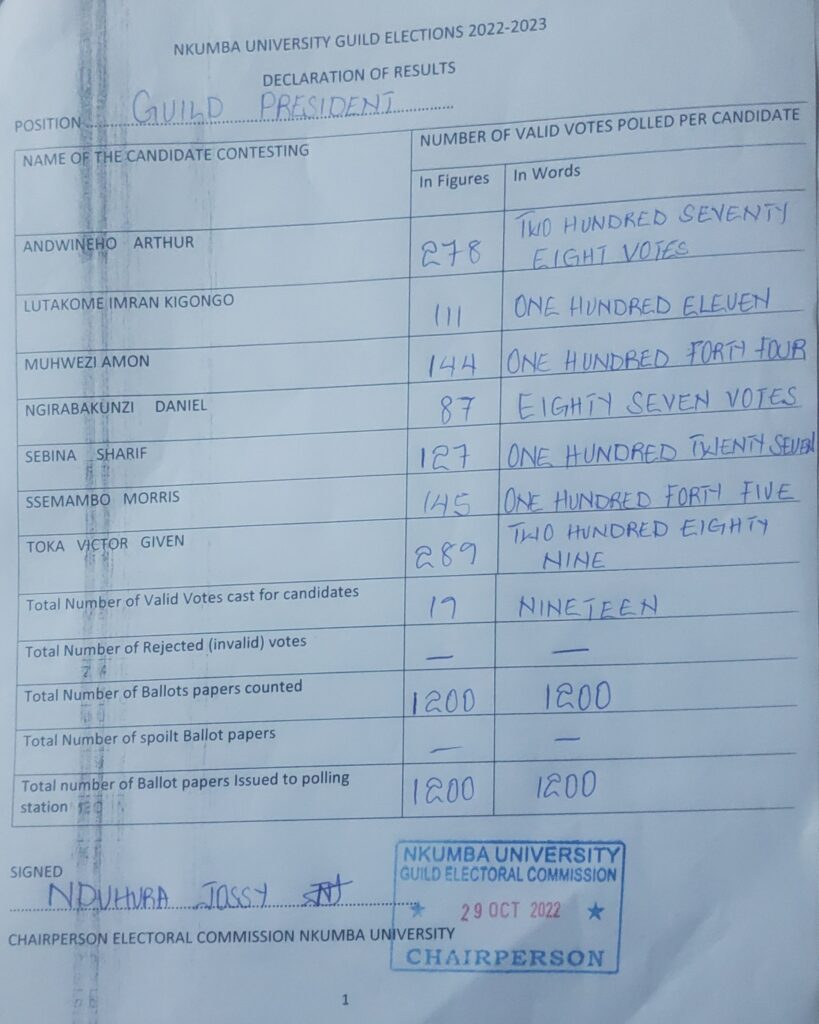 NKUMBA UNIVERSITY GUILD ELECTIONS 2022-2023
DECLARATION OF RESULTS
POSITION GUILD PRESIDENT
NAME OF THE CANDIDATE CONTESTING
NUMBER OF VALID VOTES POLLED PER CANDIDATE
In Figures In Words
ANDWINEHO ARTHUR 278 TWO HUNDRED SEVENTY
EIGHT VOTES
LUTAKOME IMRAN KIGONGO 111 ONE HUNDRED ELEVEN
MUHWEZI AMON 144 ONE HUNDRED FORTY FOUR
NGIRABAKUNZI DANIEL 87 EIGHTY SEVEN VOTES
SEBINA SHARIF 127 ONE HUNDRED TWENTY SEVEN
SSEMAMBO MORRIS 145 ONE HUNDRED FORTY FIVE
TOKA VICTOR GIVEN 289 TWO HUNDRED EIGHTY
NINE
Total Number of Valid Votes cast for candidates 19 NINETEEN
Total Number of Rejected (invalid) votes — —
Total Number of Ballots papers counted 1200 1200
Total Number of spoilt Ballot papers — —
Total number of Ballot papers Issued to polling
station 1200 1200
SIGNED
NDUHURA JOSSY
CHAIRPERSON ELECTORAL COMMISSION NKUMBA UNIVERSITY
NKUMBA UNIVERSITY
GUILD ELECTORAL COMMISSION
★ 29 OCT 2022 ★
CHAIRPERSON
1